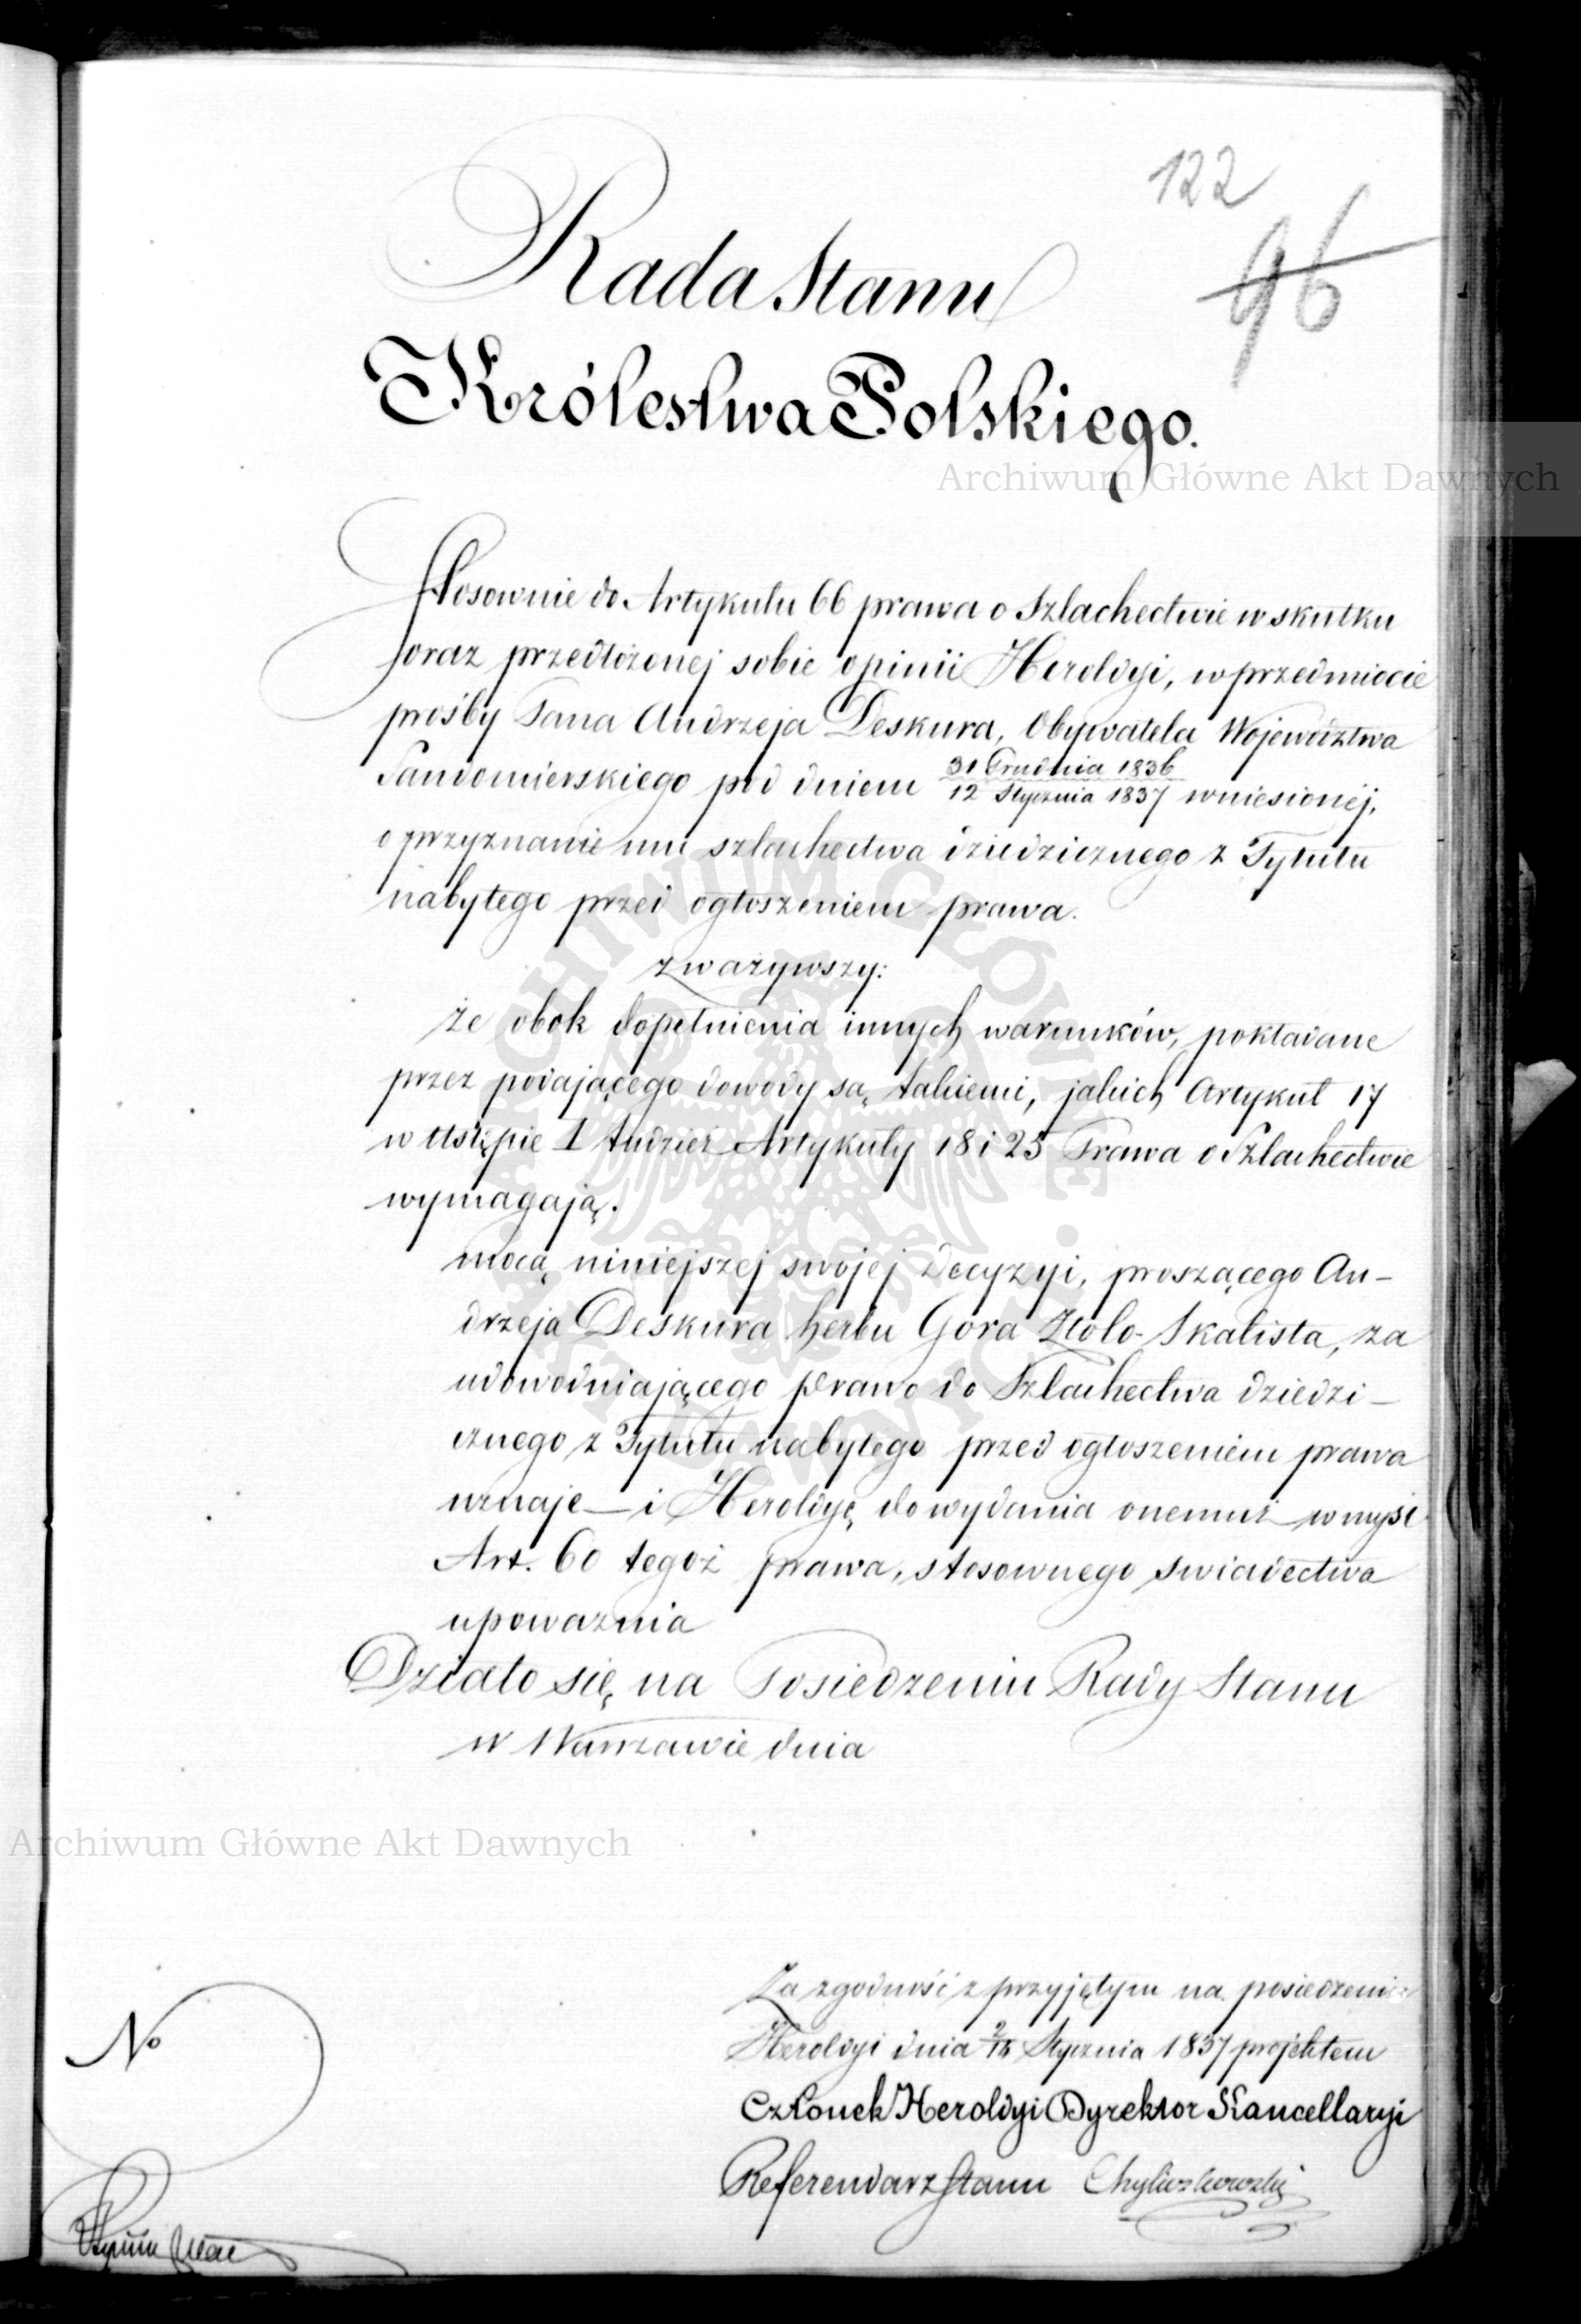 122
96
Rada Stanu
Królestwa Polskiego.
Archiwum Główne Akt Dawnych
Stosownie do Artykułu 66 prawa o Szlachectwie w skutku
oraz przedłożonej sobie opinii Heroldyi, w przedmiocie
prośby Pana Andrzeja Deskura, Obywatela Województwa
Sandomierskiego pod dniem 31 Grudnia 1836
12 Stycznia 1837 wniesionéj,
o przyznanie mu szlachectwa dziedzicznego z Tytułu
nabytego przed ogłoszeniem prawa.
zważywszy:
że obok dopełnienia innych warunków, pokładane
przez podającego dowody są takiemi, jakich Artykuł 17
w Ustępie 1 tudzież Artykuły 18 i 25 Prawa o Szlachectwie
wymagają.
mocą niniejszej swojej Decyzyi, proszącego An-
drzeja Deskura herbu Góra Złoto-Skalista, za
udowodniającego prawo do Szlachectwa dziedzi-
cznego z Tytułu nabytego przed ogłoszeniem prawa
uznaje — i Heroldyę do wydania onemuż w myśl
Art. 60 tegoż prawa, stosownego swiadectwa
upoważnia
Działo się na Posiedzeniu Rady Stanu
w Warszawie dnia
Archiwum Główne Akt Dawnych
Za zgodność z przyjętym na posiedzeniu
Heroldyi dnia Stycznia 1837 projektem
Członek Heroldyi Dyrektor Kancellaryi
Referendarz Stanu Chyliczkowski
No
ARCHIWUM GŁÓWNE AKT DAWNYCH